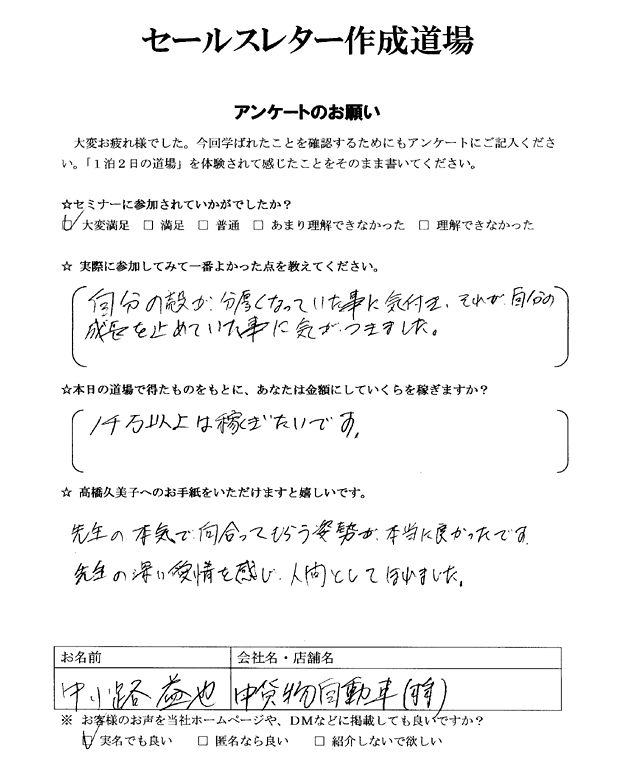 セールスレター作成道場
アンケートのお願い
大変お疲れ様でした。今回学ばれたことを確認するためにもアンケートにご記入くださ
い。「1泊2日の道場」を体験されて感じたことをそのまま書いてください。
☆セミナーに参加されていかがでしたか？
☑ 大変満足 □ 満足 □ 普通 □ あまり理解できなかった □ 理解できなかった
☆ 実際に参加してみて一番よかった点を教えてください。
自分の殻が、分厚くなっていた事に気付き、それが、自分の
成長を止めていた事に気がつきました。
☆本日の道場で得たものをもとに、あなたは金額にしていくらを稼ぎますか？
1千万以上は稼ぎたいです。
☆ 高橋久美子へのお手紙をいただけますと嬉しいです。
先生の本気で向合ってもらう姿勢が、本当に良かったです。
先生の深い愛情を感じ、人間としてほれました。
お名前 会社名・店舗名
中小路 益也 中貨物自動車(有)
※ お客様のお声を当社ホームページや、DMなどに掲載しても良いですか？
☑ 実名でも良い □ 匿名なら良い □ 紹介しないで欲しい